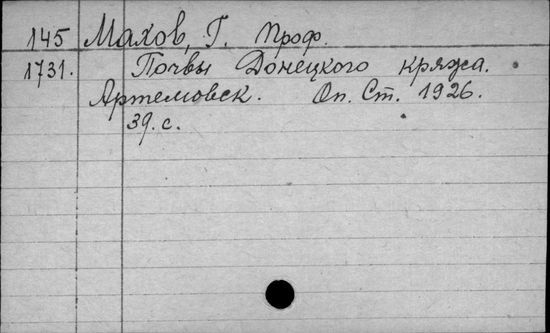 145 Махов, Г. Проф.
1731. Почвы Донецкого кряжа.
Артемовск. Оп. Ст. 1926.
39. с.